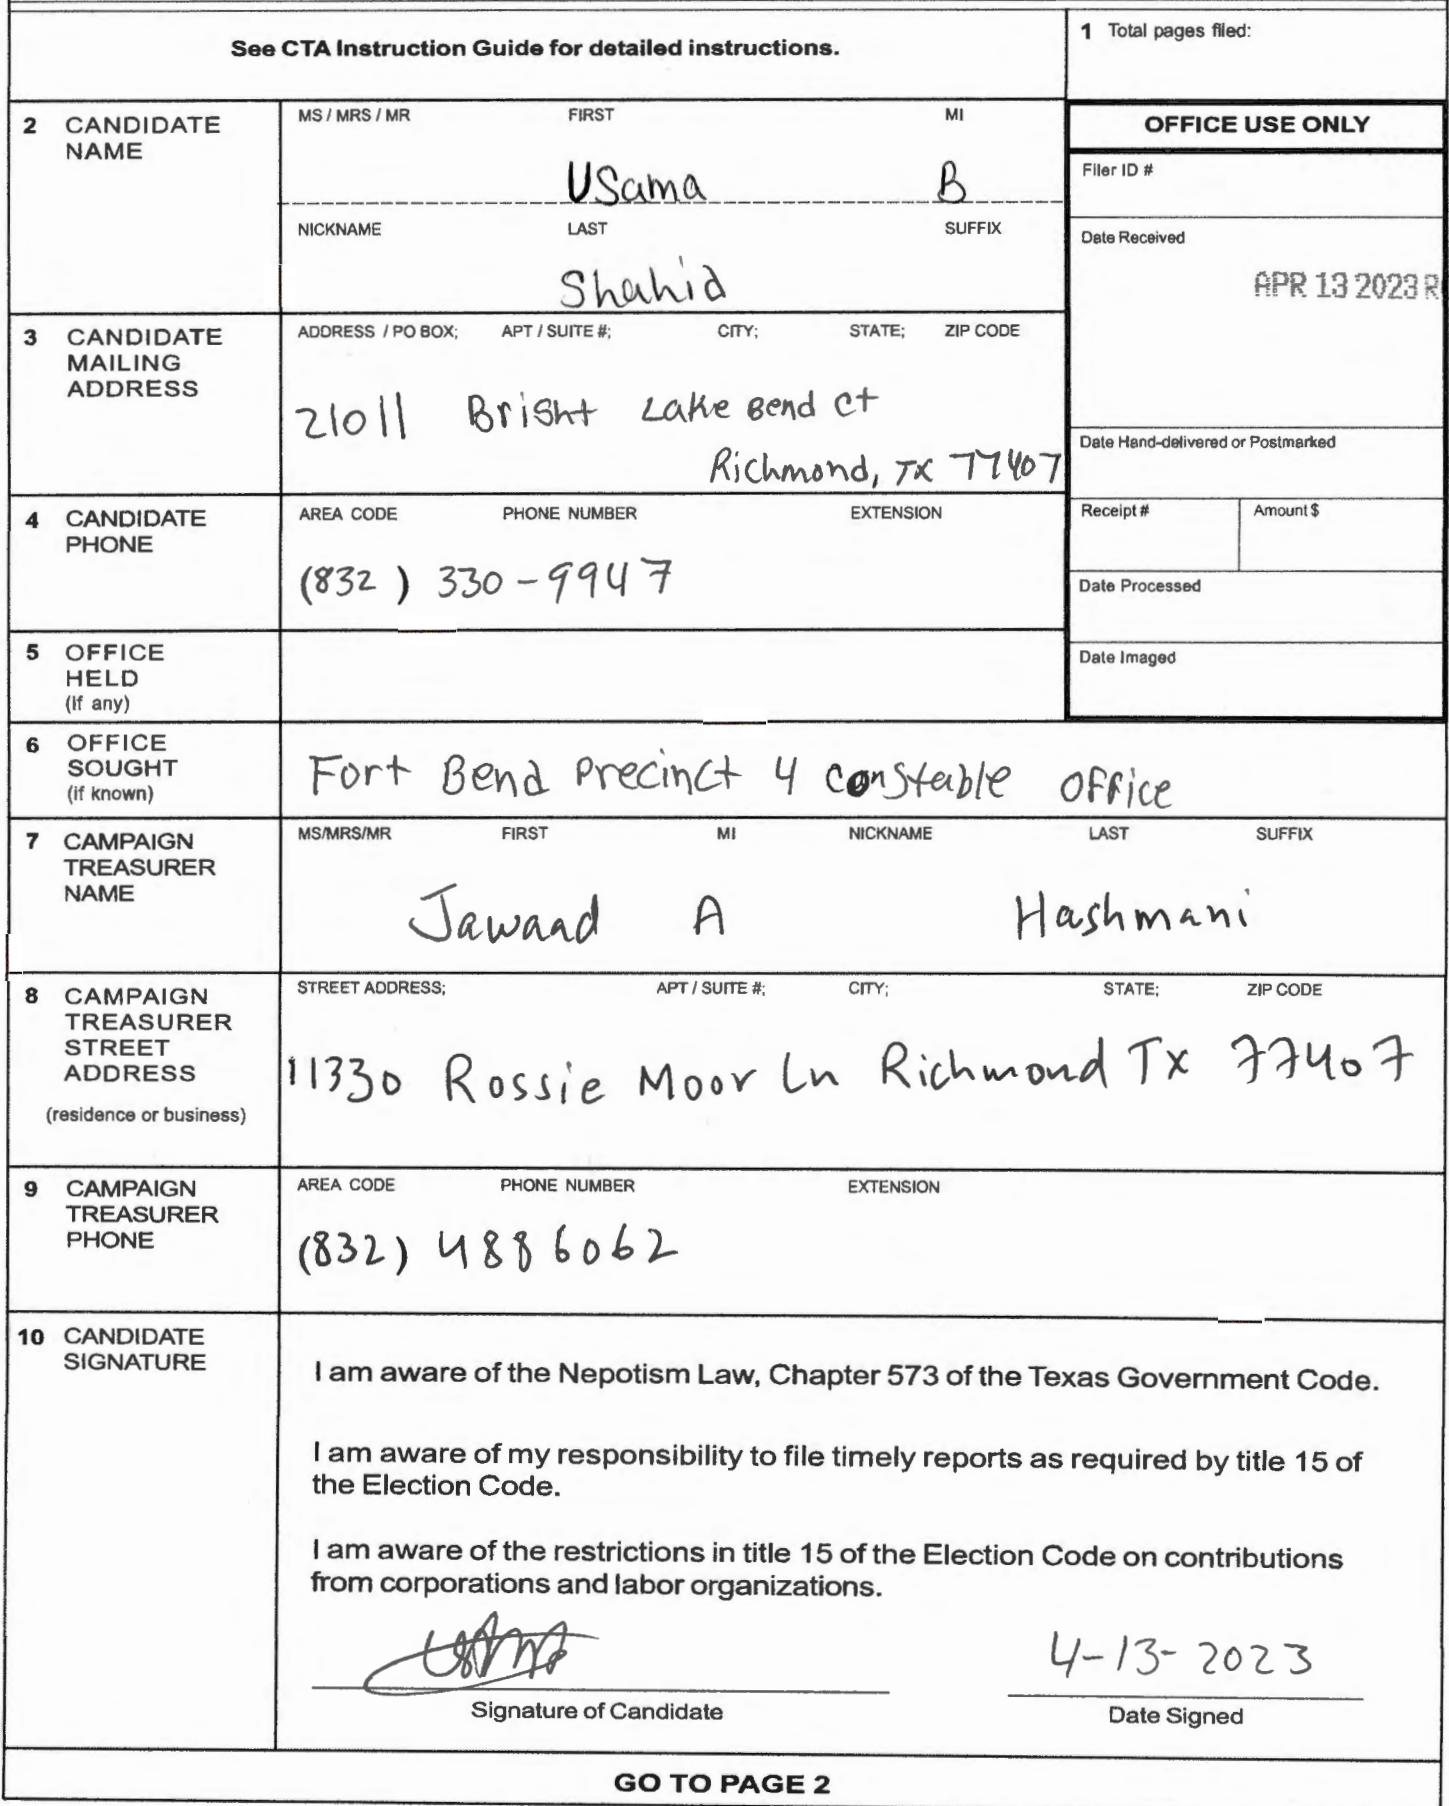 See CTA Instruction Guide for detailed instructions.
1 Total pages filed:
2 CANDIDATE NAME
MS / MRS / MR FIRST MI
USama B
NICKNAME LAST SUFFIX
Shahid
OFFICE USE ONLY
Filer ID #
Date Received
APR 13 2023 R
3 CANDIDATE MAILING ADDRESS
ADDRESS / PO BOX; APT / SUITE #; CITY; STATE; ZIP CODE
21011 Bright Lake Bend Ct
Richmond, TX 77407
Date Hand-delivered or Postmarked
4 CANDIDATE PHONE
AREA CODE PHONE NUMBER EXTENSION
(832) 330-9947
Receipt # Amount $
Date Processed
5 OFFICE HELD (if any)
Date Imaged
6 OFFICE SOUGHT (if known)
Fort Bend Precinct 4 Constable office
7 CAMPAIGN TREASURER NAME
MS/MRS/MR FIRST MI NICKNAME LAST SUFFIX
Jawaad A Hashmani
8 CAMPAIGN TREASURER STREET ADDRESS (residence or business)
STREET ADDRESS; APT / SUITE #; CITY; STATE; ZIP CODE
11330 Rossie Moor Ln Richmond Tx 77407
9 CAMPAIGN TREASURER PHONE
AREA CODE PHONE NUMBER EXTENSION
(832) 4886062
10 CANDIDATE SIGNATURE
I am aware of the Nepotism Law, Chapter 573 of the Texas Government Code.
I am aware of my responsibility to file timely reports as required by title 15 of
the Election Code.
I am aware of the restrictions in title 15 of the Election Code on contributions
from corporations and labor organizations.
4-13-2023
Signature of Candidate Date Signed
GO TO PAGE 2